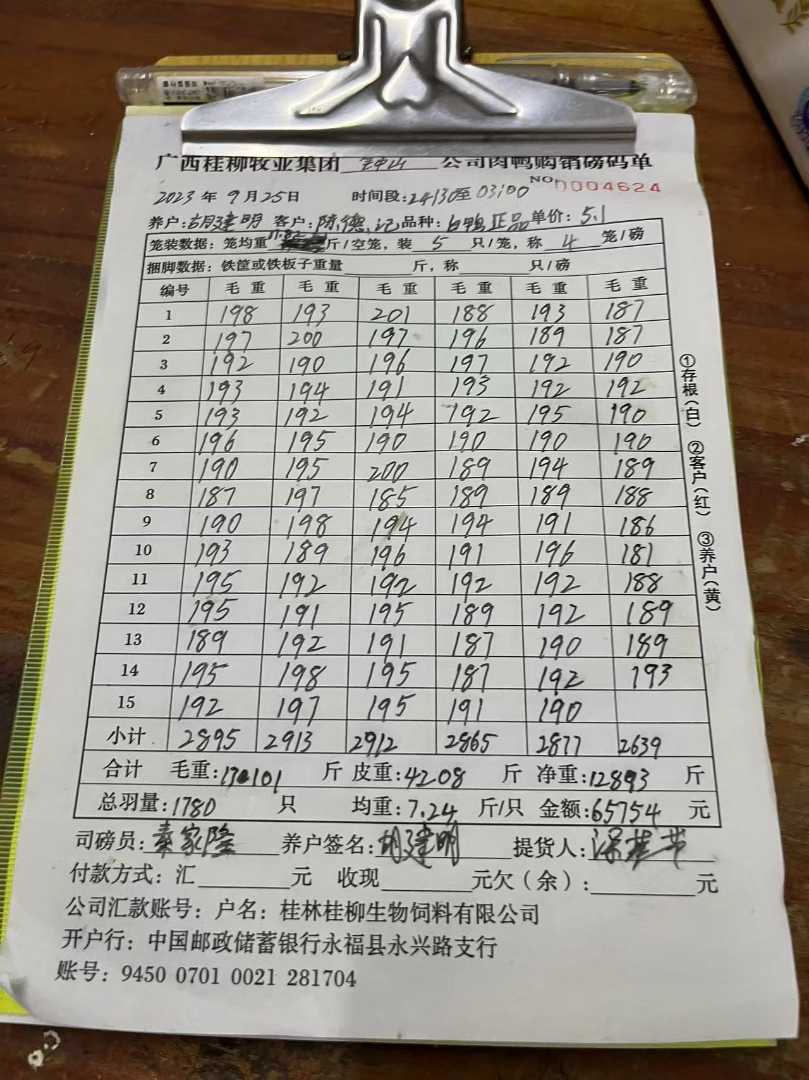 广西桂柳牧业集团 公司肉鸭购销磅码单
2023 年 9 月 25 日 时间段: 24:30至 03:00 NO 0004624
养户: 胡建明 客户: 陈德记 品种: 白鸭正品 单价: 5.1
笼装数据: 笼均重 斤/空笼, 装 5 只/笼, 称 4 笼/磅
捆脚数据: 铁筐或铁板子重量 斤, 称 只/磅
编号 毛重 毛重 毛重 毛重 毛重 毛重
1 198 193 201 188 193 187
2 197 200 197 196 189 187
3 192 190 196 197 192 190
4 193 194 191 193 192 192
5 193 192 194 192 195 190
6 196 195 190 190 190 190
7 190 195 200 189 194 189
8 187 197 185 189 189 188
9 190 198 194 194 191 186
10 193 189 196 191 196 181
11 195 192 192 192 192 188
12 195 191 195 189 192 189
13 189 192 191 187 190 189
14 195 198 195 187 192 193
15 192 197 195 191 190
小计 2895 2913 2912 2865 2877 2639
合计 毛重: 17101 斤 皮重: 4208 斤 净重: 12893 斤
总羽量: 1780 只 均重: 7.24 斤/只 金额: 65754 元
司磅员: 秦家隆 养户签名: 胡建明 提货人:
付款方式: 汇 元 收现 元欠(余): 元
公司汇款账号: 户名: 桂林桂柳生物饲料有限公司
开户行: 中国邮政储蓄银行永福县永兴路支行
账号: 9450 0701 0021 281704
①存根(白) ②客户(红) ③养户(黄)